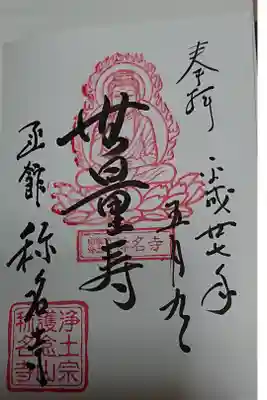 奉拝
平成廿七年
五月九日
無量寿
名寺
函館 称名寺
浄土宗
護念山
称名寺